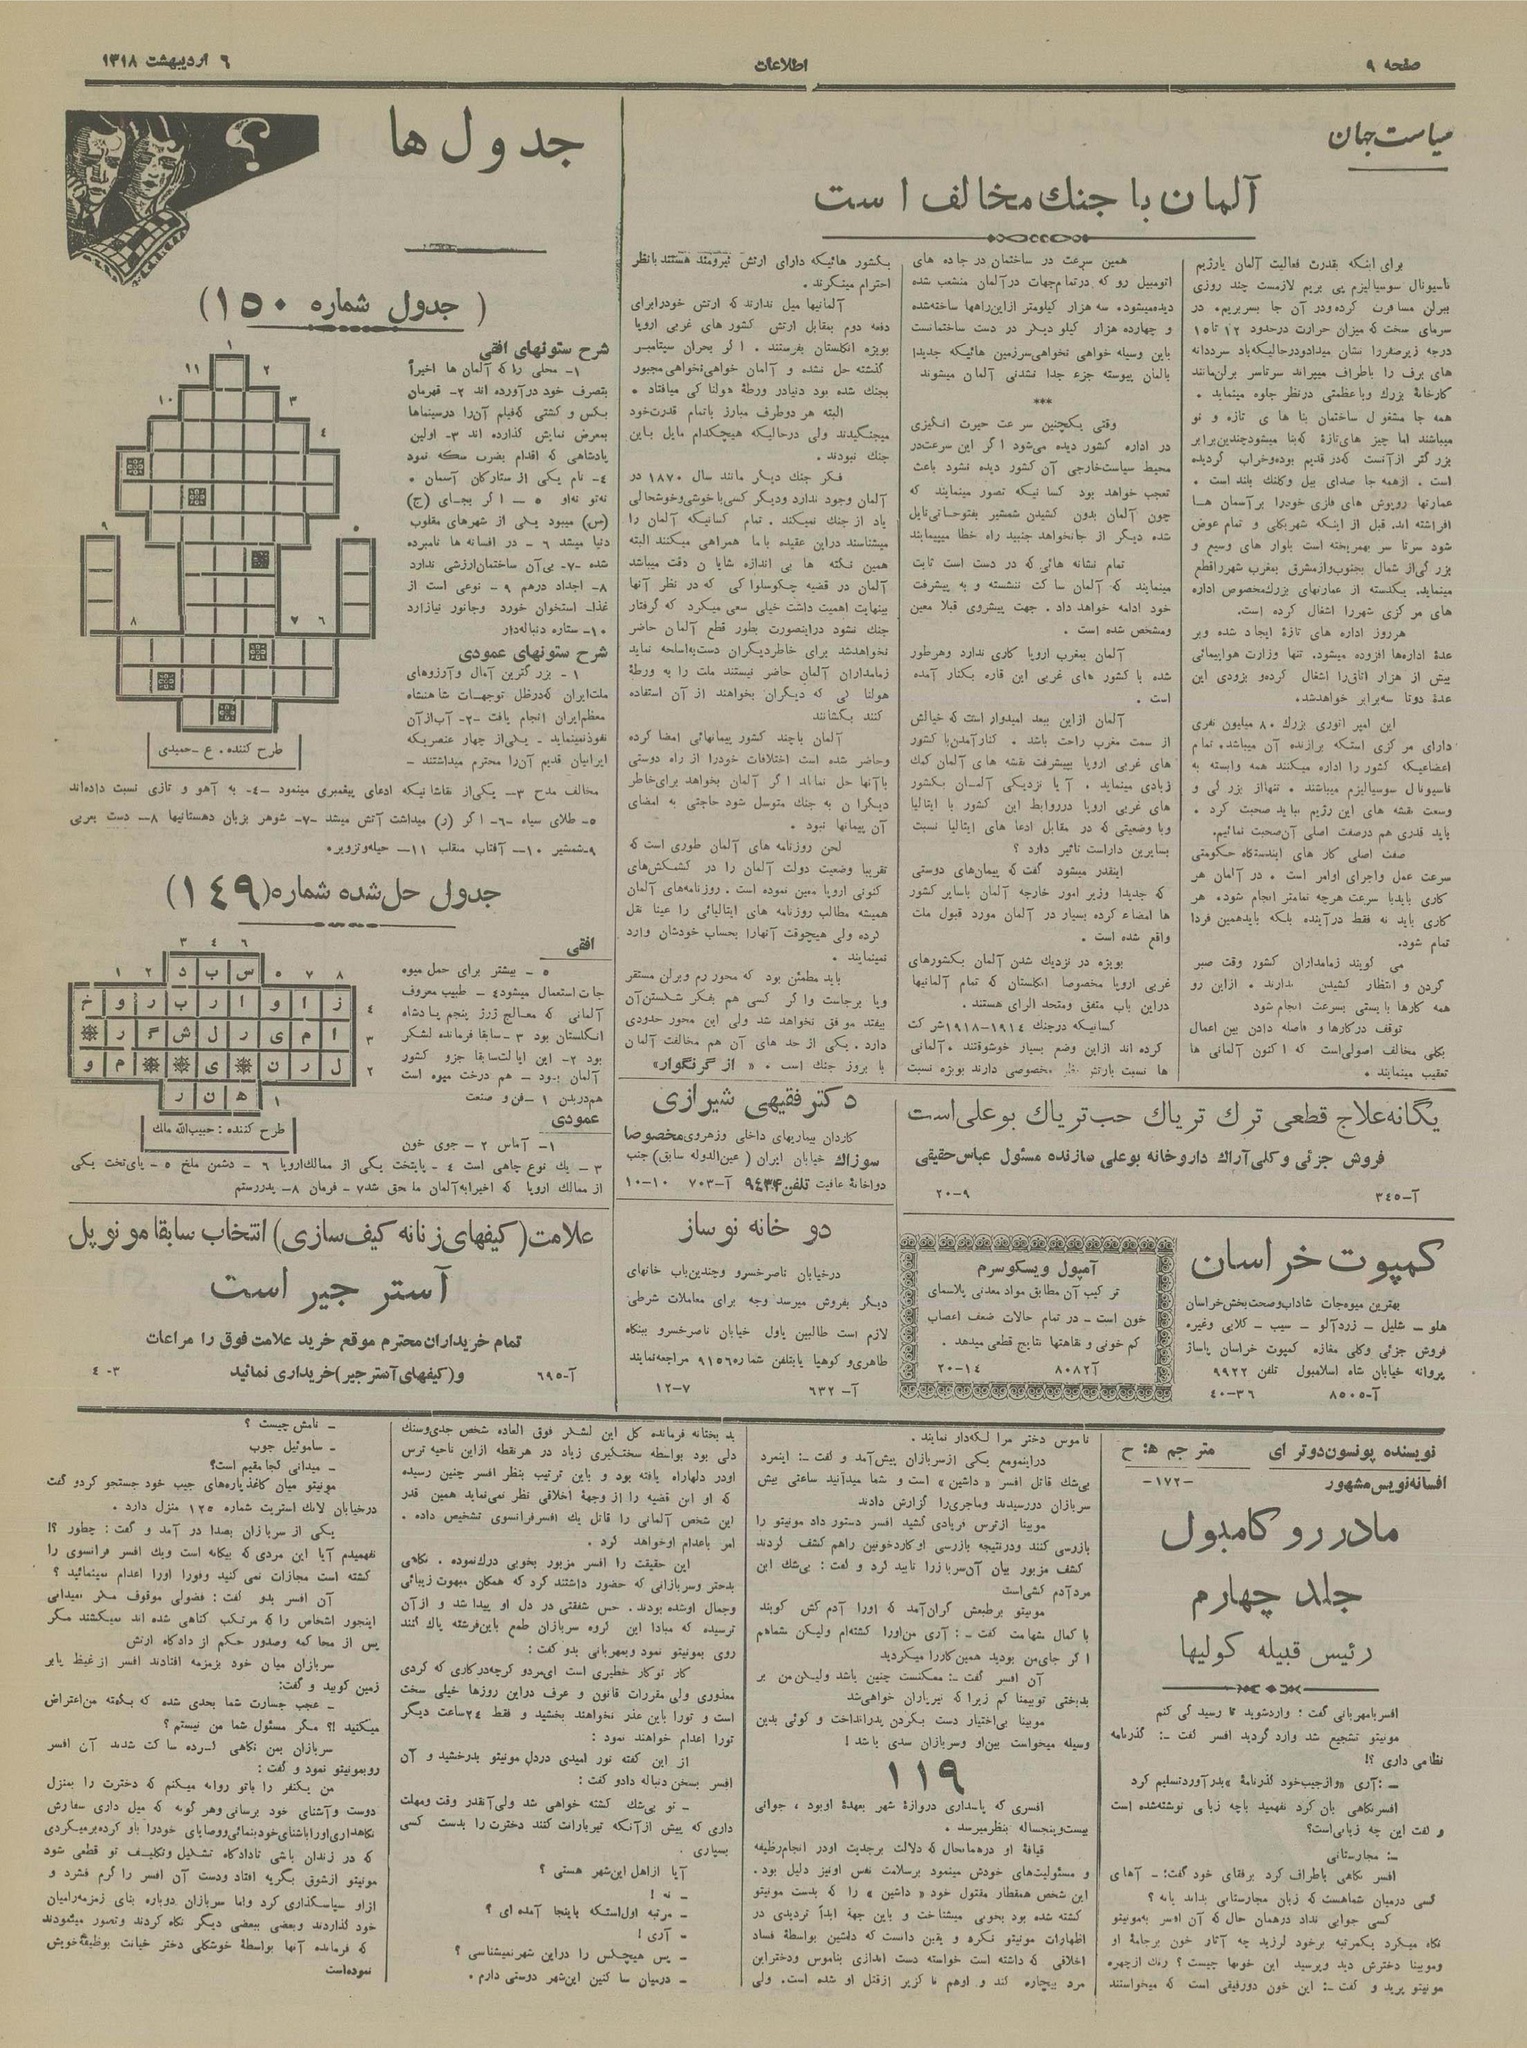 صفحه ۹
اطلاعات
۶ اردیبهشت ۱۳۱۸
سیاست جهان
آلمان با جنك مخالف است
برای اینکه بقدرت فعالیت آلمان یارژیم
ناسیونال سوسیالیزم پی بریم لازمست چند روزی
ببرلن مسافرت کرده ودر آن جا بسر بریم. در
سرمای سخت که میزان حرارت درحدود ۱۲ تا ۱۵
درجه زیرصفررا نشان میداد درحالیکه باد سرد دانه
های برف را باطراف میپراند سرتاسر برلن مانند
کارخانهٔ بزرك وباعظمتی درنظر جلوه مینماید .
همه جا مشغول ساختمان بنا های تازه و نو
میباشند اما چیز های تازهٔ که بنا میشود چندین برابر
بزرگتر از آنست که در قدیم بوده وخراب گردیده
است . ازهمه جا صدای بیل وکلنك بلند است .
عمارتها روپوش های فلزی خودرا بر آسمان هـا
افراشته اند. قبل از اینکه شهر بکلی و تمام عوض
شود سرتا سر بهم ریخته است بلوار های وسیع و
بزرگی از شمال بجنوب واز مشرق بمغرب شهر را قطع
مینماید. یکدسته از عمارتهای بزرك مخصوص اداره
های مرکزی شهر را اشغال کرده است.
هر روز اداره های تازهٔ ایجاد شده وبر
عدهٔ اداره ها افزوده میشود. تنها وزارت هواپیمائی
بیش از هزار اتاق را اشغال کرده و بزودی این
عدهٔ دوتا سه برابر خواهد شد.
این امپراتوری بزرك ۸۰ میلیون نفری
دارای مرکزی است که برازنده آن میباشد. تمام
اعضائیکه کشور را اداره میکنند همه وابسته به
ناسیونال سوسیالیزم میباشند . تنها از بزرگی و
وسعت نقشه های این رژیم نباید صحبت کرد .
باید قدری هم درصفت اصلی آن صحبت نمائیم.
صفت اصلی کار های ایندستگاه حکومتی
سرعت عمل واجرای اوامر است . در آلمان هر
کاری باید با سرعت هرچه تمامتر انجام شود. هر
کاری باید نه فقط در آینده بلکه باید همین فردا
تمام شود.
می گویند زمامداران کشور وقت صبر
کردن و انتظار کشیدن ندارند . ازاین رو
همه کارها بایستی بسرعت انجام شود
توقف در کارها و فاصله دادن بین اعمال
بکلی مخالف اصولی است که اکنون آلمانی ها
تعقیب مینمایند .
همین سرعت در ساختمان در جاده های
اتومبیل رو که در تمام جهات در آلمان منشعب شده
دیده میشود. سه هزار کیلومتر از این راهها ساخته شده
و چهارده هزار کیلو دیگر در دست ساختمانست
باین وسیله خواهی نخواهی سرزمین هائیکه جدیدا
بالمان پیوسته جزء جدا نشدنی آلمان میشوند
***
وقتی یکچنین سرعت حیرت انگیزی
در اداره کشور دیده می شود اگر این سرعت در
محیط سیاست خارجی آن کشور دیده نشود باعث
تعجب خواهد بود کسانیکه تصور مینمایند که
چون آلمان بدون کشیدن شمشیر بفتوحاتی نایل
شده دیگر از جا نخواهد جنبید راه خطا میپیمایند
تمام نشانه هائی که در دست است ثابت
مینمایند که آلمان ساکت ننشسته و به پیشرفت
خود ادامه خواهد داد . جهت پیشروی قبلا معین
ومشخص شده است .
آلمان بمغرب اروپا کاری ندارد وهر طور
شده با کشور های غربی این قاره بکنار آمده
است .
آلمان ازاین ببعد امیدوار است که خیالش
از سمت مغرب راحت باشد . کنار آمدن با کشور
های غربی اروپا بپیشرفت نقشه های آلمان کمك
زیادی مینماید . آیا نزدیکی آلمـان بکشور
های غربی اروپا درروابط این کشور با ایتالیا
وبا وضعیتی که در مقابل ادعا های ایتالیا نسبت
بسایرین دار است تاثیر دارد ؟
اینقدر میشود گفت که پیمان های دوستی
که جدیدا وزیر امور خارجه آلمان با سایر کشور
ها امضاء کرده بسیار در آلمان مورد قبول ملت
واقع شده است .
بویژه در نزدیك شدن آلمان بکشورهای
غربی اروپا مخصوصا انگلستان که تمام آلمانیها
دراین باب متفق ومتحد الرای هستند .
کسانیکه در جنك ۱۹۱۴-۱۹۱۸ شرکت
کرده اند ازاین وضع بسیار خوشوقتند . آلمانی
ها نسبت بارتش مخصوصی دارند بویژه نسبت
بکشور هائیکه دارای ارتش نیرومند هستند با نظر
احترام مینگرند .
آلمانیها میل ندارند که ارتش خود را برای
دفعه دوم بمقابل ارتش کشور های غربی اروپا
بویژه انگلستان بفرستند . اگر بحران سپتامبر
گذشته حل نشده و آلمان خواهی نخواهی مجبور
بجنك شده بود دنیا در ورطهٔ هولناکی میافتاد .
البته هر دو طرف مبارز با تمام قدرت خود
میجنگیدند ولی درحالیکه هیچکدام مایل باین
جنك نبودند .
فکر جنك دیگر مانند سال ۱۸۷۰ در
آلمان وجود ندارد ودیگر کسی با خوشی وخوشحالی
یاد از جنك نمیکند . تمام کسانیکه آلمان را
میشناسند دراین عقیده باما همراهی میکنند البته
همین نکته ها بی اندازه شایان دقت میباشد
آلمان در قضیه چکوسلواکی که در نظر آنها
بینهایت اهمیت داشت خیلی سعی میکرد که گرفتار
جنك نشود دراینصورت بطور قطع آلمان حاضر
نخواهد شد برای خاطر دیگران دست به اسلحه نماید
زمامداران آلمان حاضر نیستند ملت را به ورطهٔ
هولناکی که دیگران بخواهند از آن استفاده
کنند بکشانند
آلمان با چند کشور پیمانهائی امضا کرده
وحاضر شده است اختلافات خودرا از راه دوستی
با آنها حل نماید اگر آلمان بخواهد برای خاطر
دیگران به جنك متوسل شود حاجتی به امضای
آن پیمانها نبود .
لحن روزنامه های آلمان طوری است که
تقریبا وضعیت دولت آلمان را در کشمکش های
کنونی اروپا معین نموده است . روزنامه های آلمان
همیشه مطالب روزنامه های ایتالیائی را عینا نقل
کرده ولی هیچوقت آنهارا بحساب خودشان وارد
نمینمایند .
باید مطمئن بود که محور رم وبرلن مستقر
وپا برجاست واگر کسی هم بفکر شکستن آن
بیفتد موفق نخواهد شد ولی این محور حدودی
دارد . یکی از حد های آن هم مخالفت آلمان
با بروز جنك است . « از گرنگوار»
جدول ها
؟
( جدول شماره ۱۵۰ )
شرح ستونهای افقی
۱- محلی را که آلمان ها اخیراً
بتصرف خود در آورده اند ۲- قهرمان
بکس و کشتی که فیلم آن را در سینماها
بمعرض نمایش گذارده اند ۳- اولین
پادشاهی که اقدام بضرب سکه نمود
۴- نام یکی از ستارگان آسمان .
نه تو نه او ۵ - اگر بجای (ج)
(س) میبود یکی از شهر های مقلوب
دنیا میشد ۶ - در افسانه ها نامبرده
شده ۷- بی آن ساختمان ارزشی ندارد
۸- اجداد درهم ۹ - نوعی است از
غذا- استخوان خورد وجانور نیازارد
۱۰- ستاره دنباله دار
شرح ستونهای عمودی
۱- بزرگترین آمال وآرزوهای
ملت ایران که در ظل توجهات شاهنشاه
معظم ایران انجام یافت -۲- آب از آن
نفوذ نمینماید - یکی از چهار عنصریکه
ایرانیان قدیم آن را محترم میداشتند -
مخالف مدح ۳- یکی از نقاشانیکه ادعای پیغمبری مینمود -۴- به آهو و تازی نسبت داده اند
۵- طلای سیاه -۶- اگر (ر) میداشت آتش میشد -۷- شوهر بزبان دهستانیها ۸- دست بعربی
۹- شمشیر ۱۰- آفتاب منقلب ۱۱- حیله وتزویر.
۱
۱۱ ۲
۱۰ ۳
۴
۹ ۵
۸ ۷ ۶
طرح کننده . ع - حمیدی
جدول حل شده شماره (۱۴۹)
افقی
۵ - بیشتر برای حمل میوه
جات استعمال میشود ۴ - طبیب معروف
آلمانی که معالج ژرژ پنجم پادشاه
انگلستان بود ۳ - سابقا فرمانده لشگر
بود ۲- این ایالت سابقا جزو کشور
آلمان بود - هم درخت میوه است
هم در بدن ۱ - فن و صنعت
عمودی
۱- آماس ۲ - جوی خون
۳ - یك نوع چاهی است ۴ - پایتخت یکی از ممالك اروپا ۶ - دشمن ملخ ۵ - پای تخت یکی
از ممالك اروپا که اخیرا به آلمان ملحق شد ۷ - فرمان ۸- پدر رستم
۳ ۴ ۶
۱ ۲ ۵ ۷ ۸
س ب د
ز ا و ا ر ب ر و خ ۴
ا م ی ر ل ش گ ر ۳
ل ر ن ی م و ۲
ه ن ر ۱
طرح کننده : حبیب الله مالك
یگانه علاج قطعی ترك تریاك حب تریاك بوعلی است
فروش جزئی و کلی آراك داروخانه بوعلی سازنده مسئول عباس حقیقی
آ-۳۴۵
۲۰-۹
دکتر فقیهی شیرازی
کاردان بیماریهای داخلی وزهروی مخصوصا
سوزاك خیابان ایران (عین الدوله سابق) جنب
دواخانهٔ عافیت تلفن ۹۴۳۴ آ-۷۰۳ ۱۰-۱۰
کمپوت خراسان
بهترین میوه جات شاداب وصحت بخش خراسان
هلو - شلیل - زردآلو - سیب - گلابی وغیره
فروش جزئی وکلی مغازه کمپوت خراسان پاساژ
پروانه خیابان شاه اسلامبول تلفن ۹۹۲۲
آ-۸۵۰۵
۴۰-۳۶
آمپول ویسکوسرم
ترکیب آن مطابق مواد معدنی پلاسمای
خون است - در تمام حالات ضعف اعصاب
کم خونی و نقاهتها نتایج قطعی میدهد .
آ ۸۰۸۲
۲۰-۱۴
دو خانه نوساز
در خیابان ناصر خسرو وچندین باب خانهای
دیگر بفروش میرسد وجه برای معاملات شرطی
لازم است طالبین پاول خیابان ناصر خسرو ببنگاه
طاهری وکوهپا یا بتلفن شماره ۹۱۵۶ مراجعه نمایند
آ- ۶۳۲
۱۲-۷
علامت (کیفهای زنانه کیف سازی) انتخاب سابقا مونوپل
آستر جیر است
تمام خریداران محترم موقع خرید علامت فوق را مراعات
و (کیفهای آستر جیر) خریداری نمائید
آ-۶۹۵
۴ -۳
نویسنده پونسون دوترای
مترجم ه: ح
افسانه نویس مشهور
-۱۷۲-
مادر روکامبول
جلد چهارم
رئیس قبیله کولیها
افسر بامهربانی گفت : وارد شوید تا رسیدگی کنم
مونیتو تشجیع شد وارد گردید افسر گفت -: گذرنامه
نظامی داری ؟!
-: آری «واز جیب خود گذرنامهٔ » بدر آورد تسلیم کرد
افسر نگاهی بآن کرد نفهمید باچه زبانی نوشته شده است
و گفت این چه زبانی است؟
-: مجارستانی
افسر نگاهی باطراف کرد برفقای خود گفت:- آهای
کسی درمیان شماهست که زبان مجارستانی بداند یانه ؟
کسی جوابی نداد درهمان حال که آن افسر به مونیتو
نگاه میکرد یکمرتبه برخود لرزید چه آثار خون برجامهٔ او
ومویینا دخترش دید وپرسید این خونها چیست ؟ رنك از چهره
مونیتو پرید و گفت -: این خون دورفیقی است که میخواستند
ناموس دختر مرا لکه دار نمایند .
دراینموقع یکی از سربازان پیش آمد و گفت -: اینمرد
بی شك قاتل افسر « داشین » است و شما میدانید ساعتی پیش
سربازان در رسیدند وماجری را گزارش دادند
موبینا از ترس فریادی کشید افسر دستور داد مونیتو را
بازرسی کنند ودر نتیجه بازرسی او کارد خونین را هم کشف کردند
کشف مزبور بیان آن سرباز را تایید کرد و گفت : بی شك این
مرد آدم کشی است
مونیتو برطبعش گران آمد که اورا آدم کش گویند
با کمال شهامت گفت -: آری من اورا کشته ام ولیکن شما هم
اگر جای من بودید همین کار را میکردید
آن افسر گفت -: ممکنست چنین باشد ولیکن من بر
بدبختی تو بیمناکم زیرا که تیرباران خواهی شد
موبینا بی اختیار دست بگردن پدر انداخت و گوئی بدین
وسیله میخواست بین او وسربازان سدی باشد !
۱۱۹
افسری که پاسداری دروازهٔ شهر بعهدهٔ او بود ، جوانی
بیست وپنجساله بنظر میرسد .
قیافهٔ او درهمانحال که دلالت برجدیت اودر انجام وظیفه
و مسئولیت های خودش مینمود برسلامت نفس اونیز دلیل بود .
این شخص همقطار مقتول خود « داشین » را که بدست مونیتو
کشته شده بود بخوبی میشناخت و باین جهة ابداً تردیدی در
اظهارات مونیتو نکرد و یقین دانست که داشین بواسطهٔ فساد
اخلاقی که داشته است خواسته دست اندازی بناموس ودختر این
مرد بیچاره کند و اوهم ناگزیر ازقتل او شده است. ولی
بدبختانه فرمانده کل این لشکر فوق العاده شخص جدی وسنك
دلی بود بواسطه سختگیری زیاد در هر نقطه از این ناحیه ترس
اودر دلها راه یافته بود و باین ترتیب بنظر افسر چنین رسیده
که او این قضیه را از وجههٔ اخلاقی نظر نمی نماید همین قدر
این شخص آلمانی را قاتل یك افسر فرانسوی تشخیص داده .
امر باعدام اوخواهد کرد .
این حقیقت را افسر مزبور بخوبی درك نموده . نگاهی
بدختر وسربازانی که حضور داشتند کرد که همگان مبهوت زیبائی
وجمال او شده بودند. حس شفقتی در دل او پیدا شد و از آن
ترسیده که مبادا این گروه سربازان طمع باین فرشته پاك کنند
روی بمونیتو نمود وبمهربانی بدو گفت :
کار تو کار خطیری است ای مرد و گرچه در کاری که کردی
معذوری ولی مقررات قانون و عرف دراین روزها خیلی سخت
است و تورا باین عذر نخواهند بخشید و فقط ۲۴ ساعت دیگر
تورا اعدام خواهند نمود :
از این گفته نور امیدی در دل مونیتو بدرخشید و آن
افسر بسخن دنباله داد و گفت :
- تو بی شك کشته خواهی شد ولی آنقدر وقت ومهلت
داری که پیش از آنکه تیربارات کنند دخترت را بدست کسی
بسپاری .
آیا از اهل این شهر هستی ؟
- نه !
- مرتبه اول است که باینجا آمده ای ؟
- آری !
- پس هیچکس را دراین شهر نمیشناسی ؟
- درمیان ساکنین این شهر دوستی دارم .
- نامش چیست ؟
- ساموئیل جوب
- میدانی کجا مقیم است؟
مونیتو میان کاغذپاره های جیب خود جستجو کرد و گفت
در خیابان لانك استریت شماره ۱۲۵ منزل دارد .
یکی از سربازان بصدا در آمد و گفت : چطور ؟!
نفهمیدم آیا این مردی که بیگانه است ویك افسر فرانسوی را
کشته است مجازات نمی کنید وفورا اورا اعدام نمینمائید ؟
آن افسر بدو گفت : فضولی موقوف مگر نمیدانی
اینجور اشخاص را که مرتکب گناهی شده اند نمیکشند مگر
پس از محاکمه وصدور حکم از دادگاه ارتش
سربازان میان خود بزمزمه افتادند افسر از غیظ پابر
زمین کوبید و گفت:
- عجب جسارت شما بحدی شده که بگفته من اعتراض
میکنید !؟ مگر مسئول شما من نیستم ؟
سربازان بمن نگاهی کرده ساکت شدند آن افسر
رو بمونیتو نمود و گفت :
من یکنفر را باتو روانه میکنم که دخترت را بمنزل
دوست وآشنای خود برسانی وهر گونه که میل داری سفارش
نگاهداری اورا باشنای خود بنمائی ووصایای خودرا باو کرده برمیگردی
که در زندان باشی تا دادگاه تشکیل وتکلیف تو قطعی شود
مونیتو از شوق بگریه افتاد ودست آن افسر را گرم فشرد و
ازاو سپاسگذاری کرد واما سربازان دوباره بنای زمزمه را میان
خود گذاردند وبعضی ببعضی دیگر نگاه کردند وتصور مینمودند
که فرمانده آنها بواسطهٔ خوشگلی دختر خیانت بوظیفهٔ خویش
نموده است